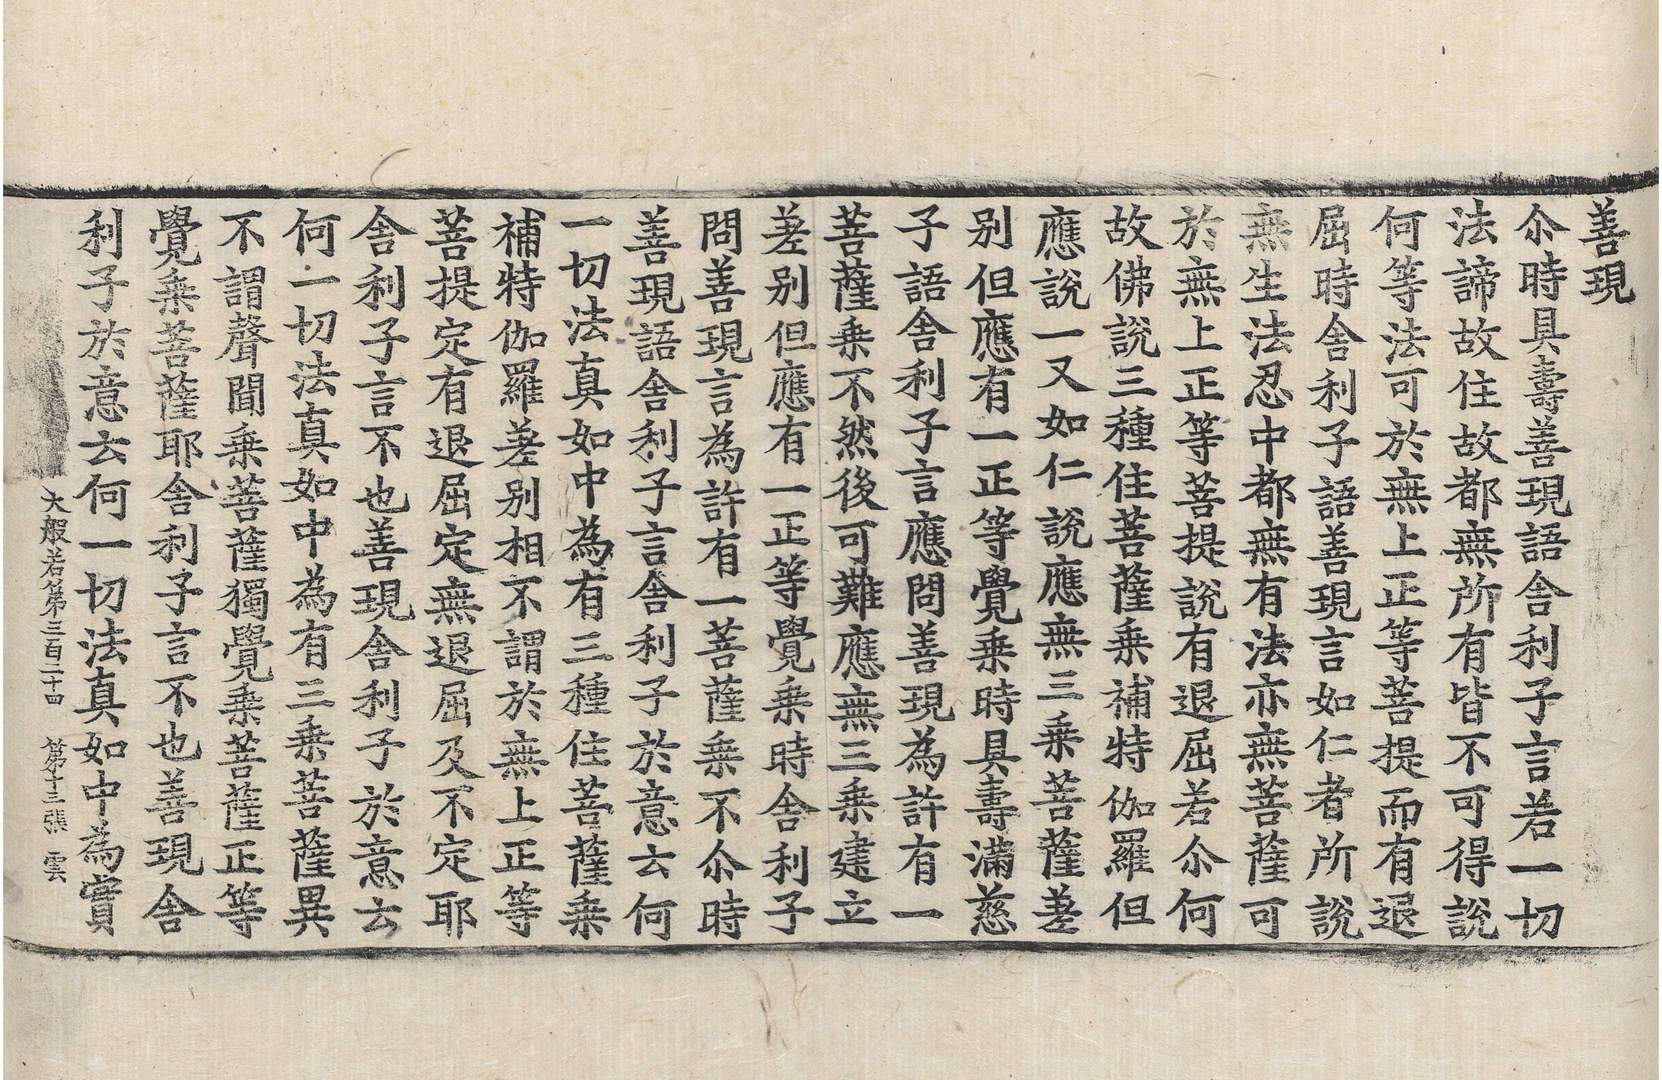 善現
尒時具壽善現語舍利子言若一切
法諦故住故都無所有皆不可得說
何等法可於無上正等菩提而有退
屈時舍利子語善現言如仁者所說
無生法忍中都無有法亦無菩薩可
於無上正等菩提說有退屈若尒何
故佛說三種住菩薩乘補特伽羅但
應說一又如仁說應無三乘菩薩差
別但應有一正等覺乘時具壽滿慈
子語舍利子言應問善現為許有一
菩薩乘不然後可難應無三乘建立
差別但應有一正等覺乘時舍利子
問善現言為許有一菩薩乘不尒時
善現語舍利子言舍利子於意云何
一切法真如中為有三種住菩薩乘
補特伽羅差別相不謂於無上正等
菩提定有退屈定無退屈及不定耶
舍利子言不也善現舍利子於意云
何一切法真如中為有三乘菩薩異
不謂聲聞乘菩薩獨覺乘菩薩正等
覺乘菩薩耶舍利子言不也善現舍
利子於意云何一切法真如中為實
大般若第三百二十四 第十三張 雲